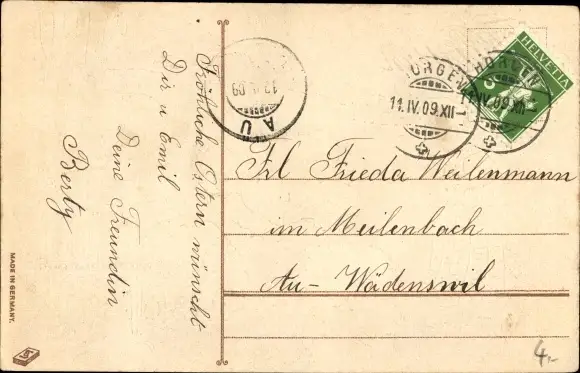 Fröhliche Ostern wünscht
Dir u Emil
Deine Freundin
Berty
MADE IN GERMANY.
AU
HELVETIA
5
HORGEN
11.IV.09.XII-
Frl Frieda Weilenmann
im Meilenbach
Au-Wädenswil
4.-